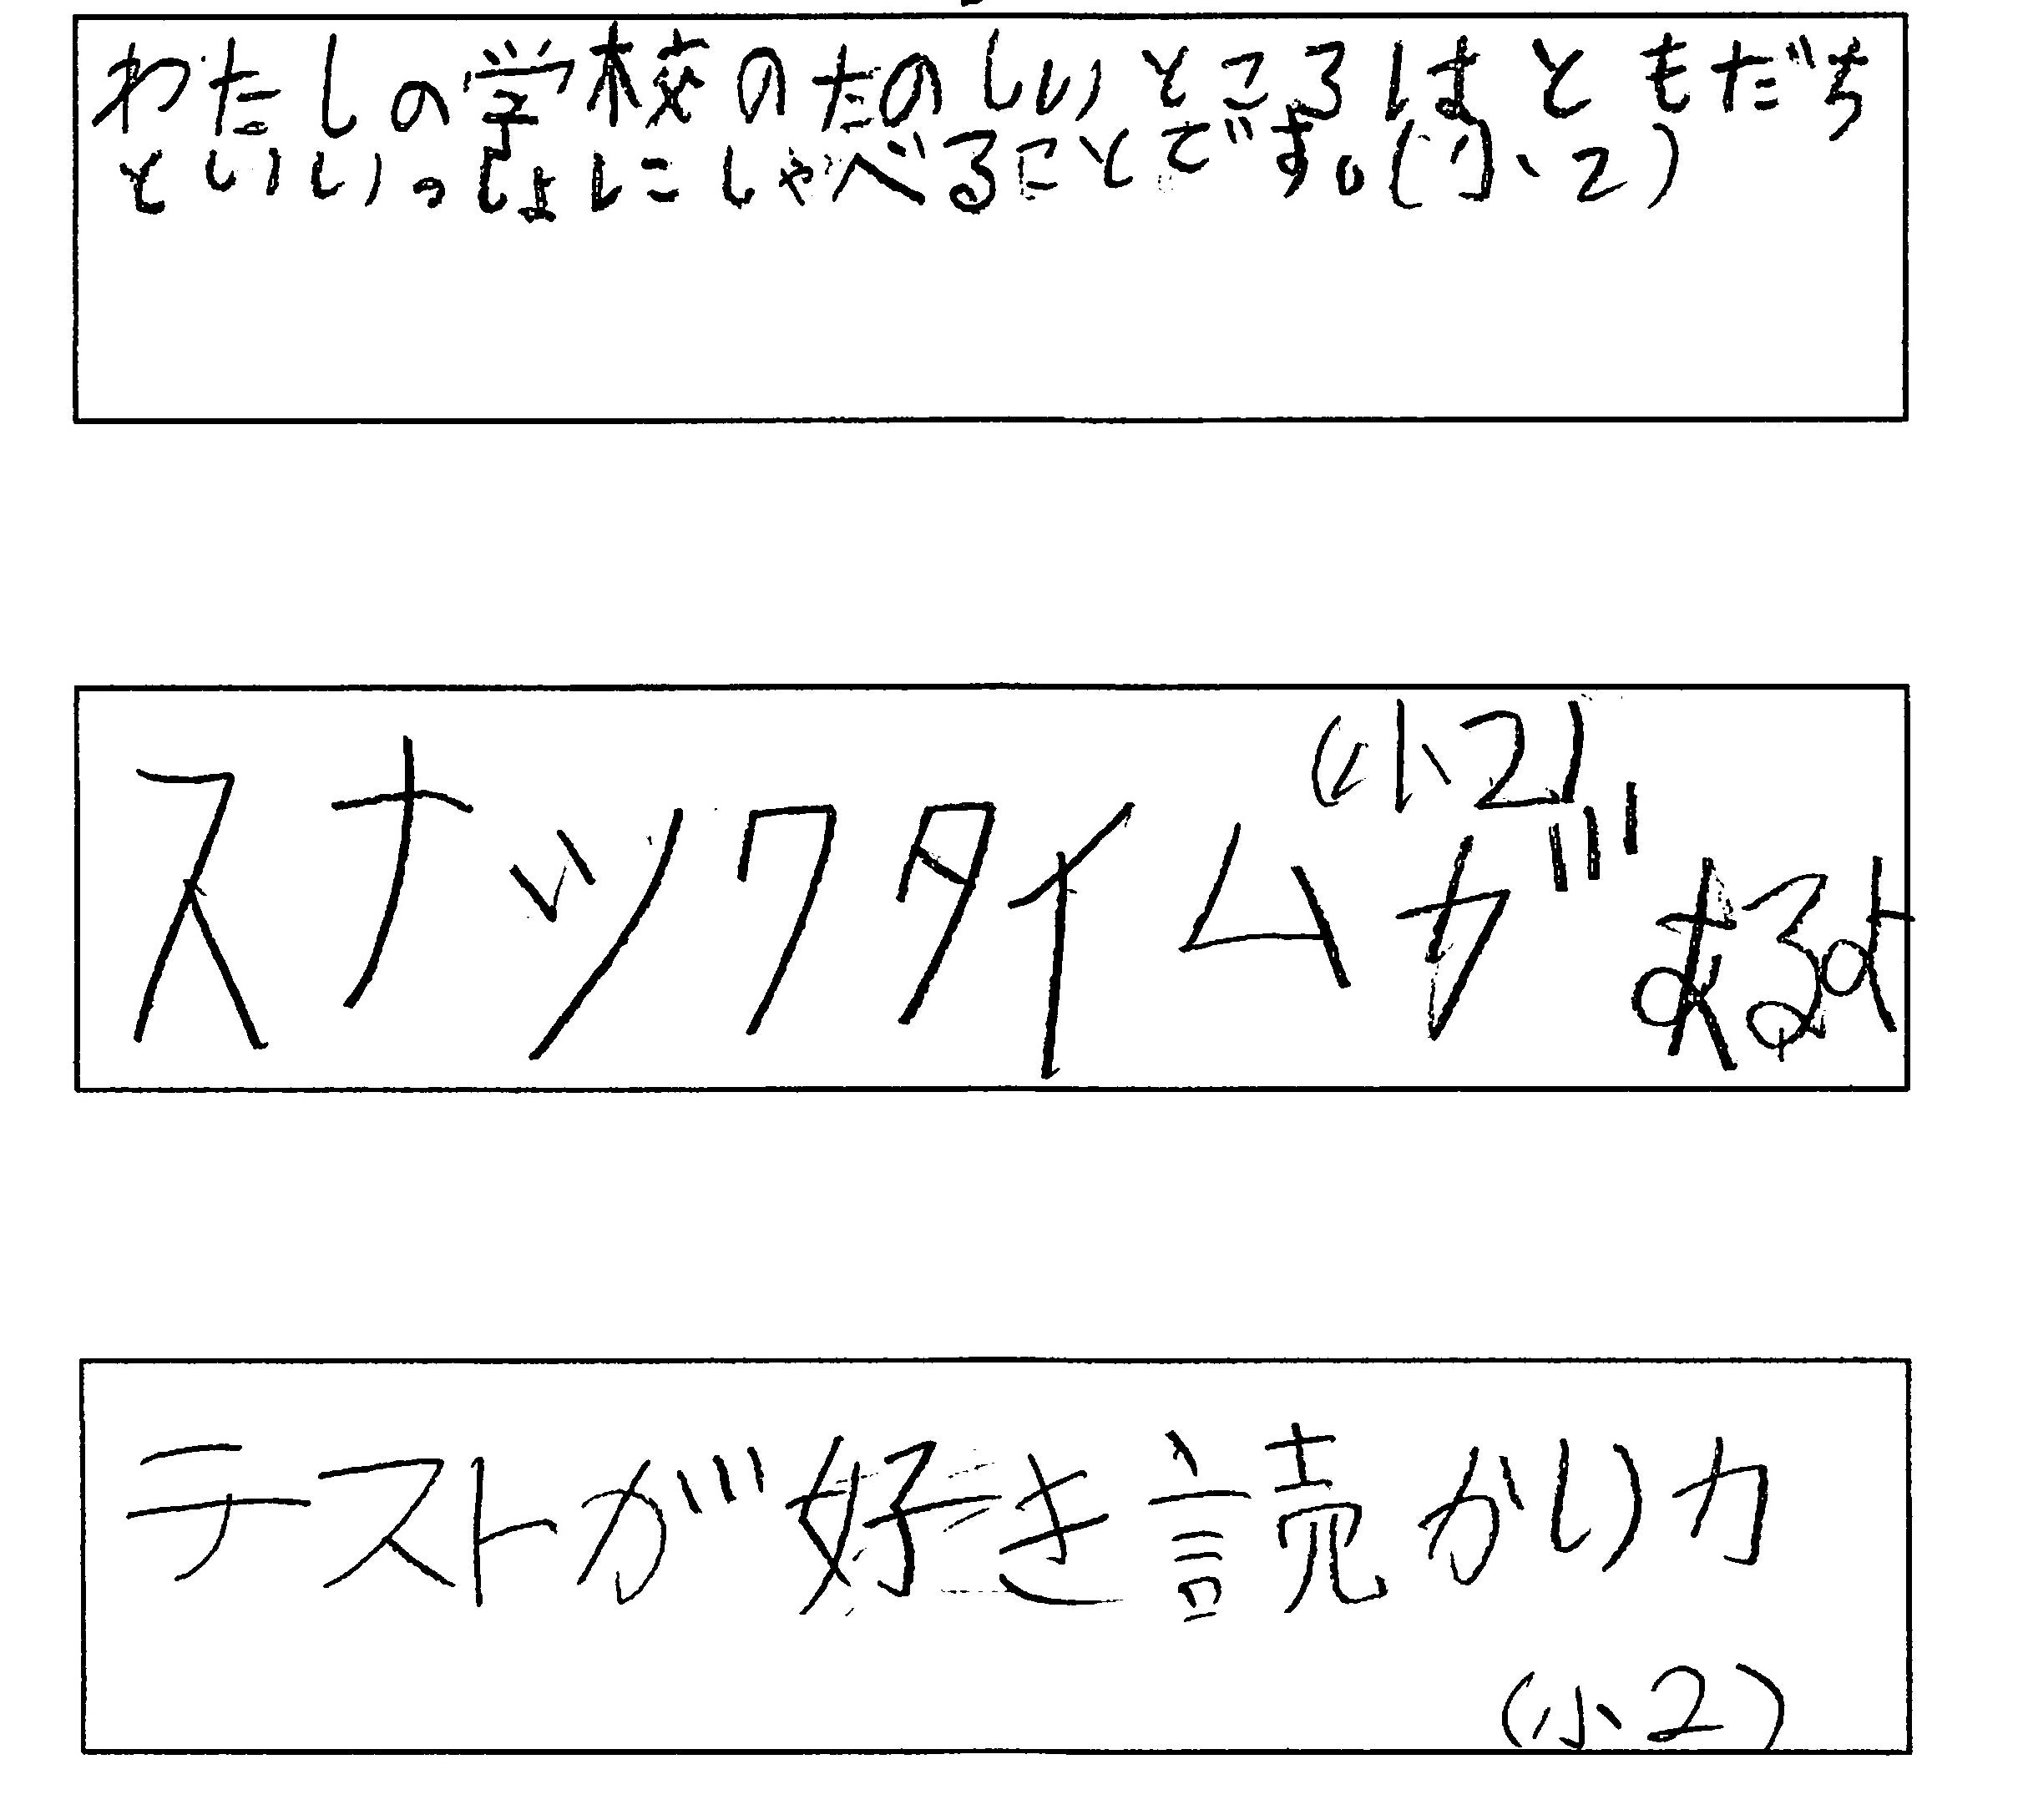 わたしの学校のたのしいところはともだち
といいっしょにしゃべることです。(小2)
(小2)
スナックタイムガあるよ
テストが好き読かい力
(小2)